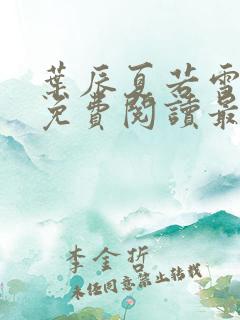 葉辰夏若雪
免費閱讀最
李金哲
未經同意禁止轉載